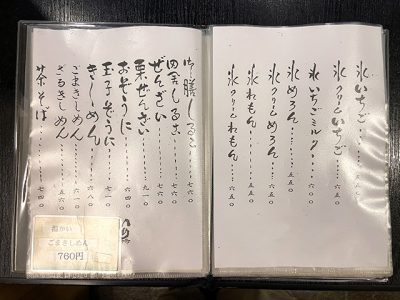 氷いちご
氷クリームいちご
氷いちごミルク・・・六〇〇
氷めろん・・・五五〇
氷クリームめろん・・・六五〇
氷れもん・・・五五〇
氷クリームれもん・・・六五〇
御膳しるこ・・・七六〇
田舎しるこ・・・七六〇
ぜんざい・・・七六〇
栗ぜんざい・・・九一〇
おぞうに・・・六四〇
玉子ぞうに・・・七一〇
きしめん・・・六八〇
ごまきしめん・・・六一〇
ざるきしめん・・・五六〇
茶そば・・・七四〇
温かい
ごまきしめん
760円